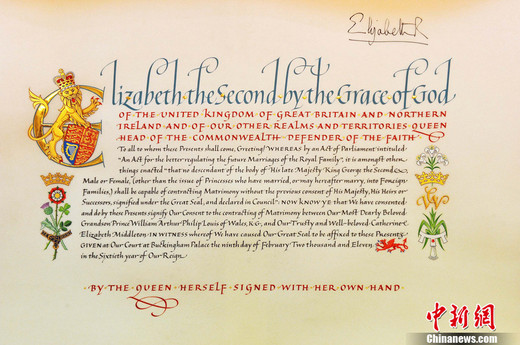 Elizabeth R
Elizabeth the Second by the Grace of God
OF THE UNITED KINGDOM OF GREAT BRITAIN AND NORTHERN
IRELAND AND OF OUR OTHER REALMS AND TERRITORIES QUEEN
HEAD OF THE COMMONWEALTH DEFENDER OF THE FAITH
To all to whom these Presents shall come, Greeting! WHEREAS by an Act of Parliament intituled
"An Act for the better regulating the future Marriages of the Royal Family", it is amongst other
things enacted "that no descendant of the body of His late Majesty King George the Second
Male or Female, (other than the issue of Princesses who have married, or may hereafter marry, into Foreign
Families,) shall be capable of contracting Matrimony without the previous consent of His Majesty, His Heirs or
Successors, signified under the Great Seal, and declared in Council": NOW KNOW YE that We have consented
and do by these Presents signify Our Consent to the contracting of Matrimony between Our Most Dearly Beloved
Grandson Prince William Arthur Philip Louis of Wales, K.G., and Our Trusty and Well-beloved Catherine
Elizabeth Middleton. IN WITNESS whereof We have caused Our Great Seal to be affixed to these Presents
GIVEN at Our Court at Buckingham Palace the ninth day of February Two thousand and Eleven
in the Sixtieth year of Our Reign.
BY THE QUEEN HERSELF SIGNED WITH HER OWN HAND
中新網
Chinanews.com